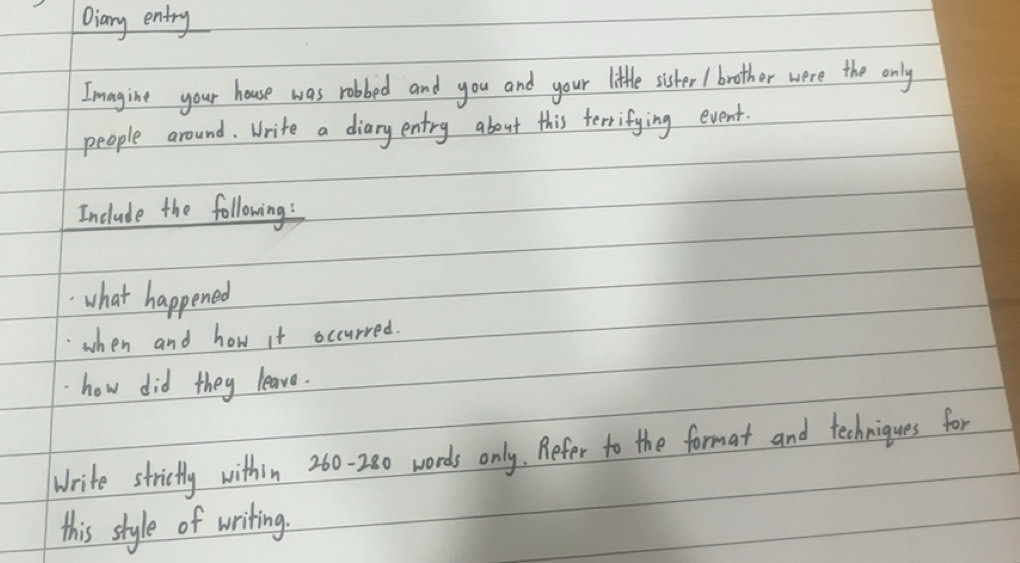 Diary entry
Imagine your house was robbed and you and your little sister/brother were the only
people around. Write a diary entry about this terrifying event.
Include the following:
· what happened
· when and how it occurred.
· how did they leave.
Write strictly within 260-280 words only. Refer to the format and techniques for
this style of writing.